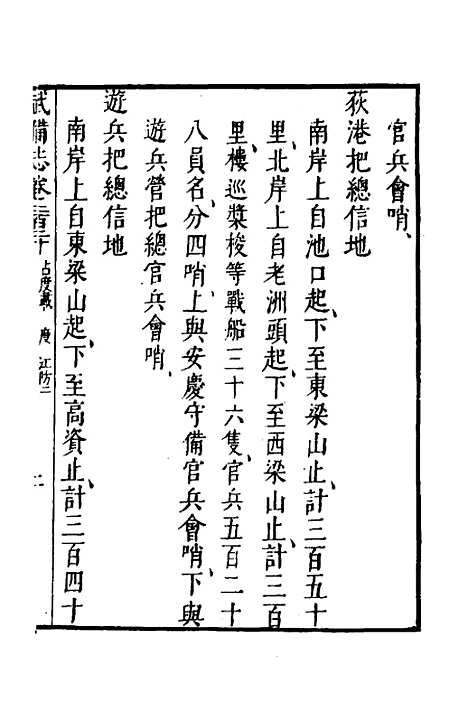 官兵會哨、
荻港把總信地
南岸上自池口起、下至東梁山止、計三百五十
里、北岸上自老洲頭起、下至西梁山止、計三百
里、樓巡槳梭等戰船三十六隻、官兵五百二十
八員名、分四哨、上與安慶守備官兵會哨、下與
遊兵營把總官兵會哨、
遊兵把總信地
南岸上自東梁山起、下至高資止、計三百四十
武備志卷 占度載 度 江防二